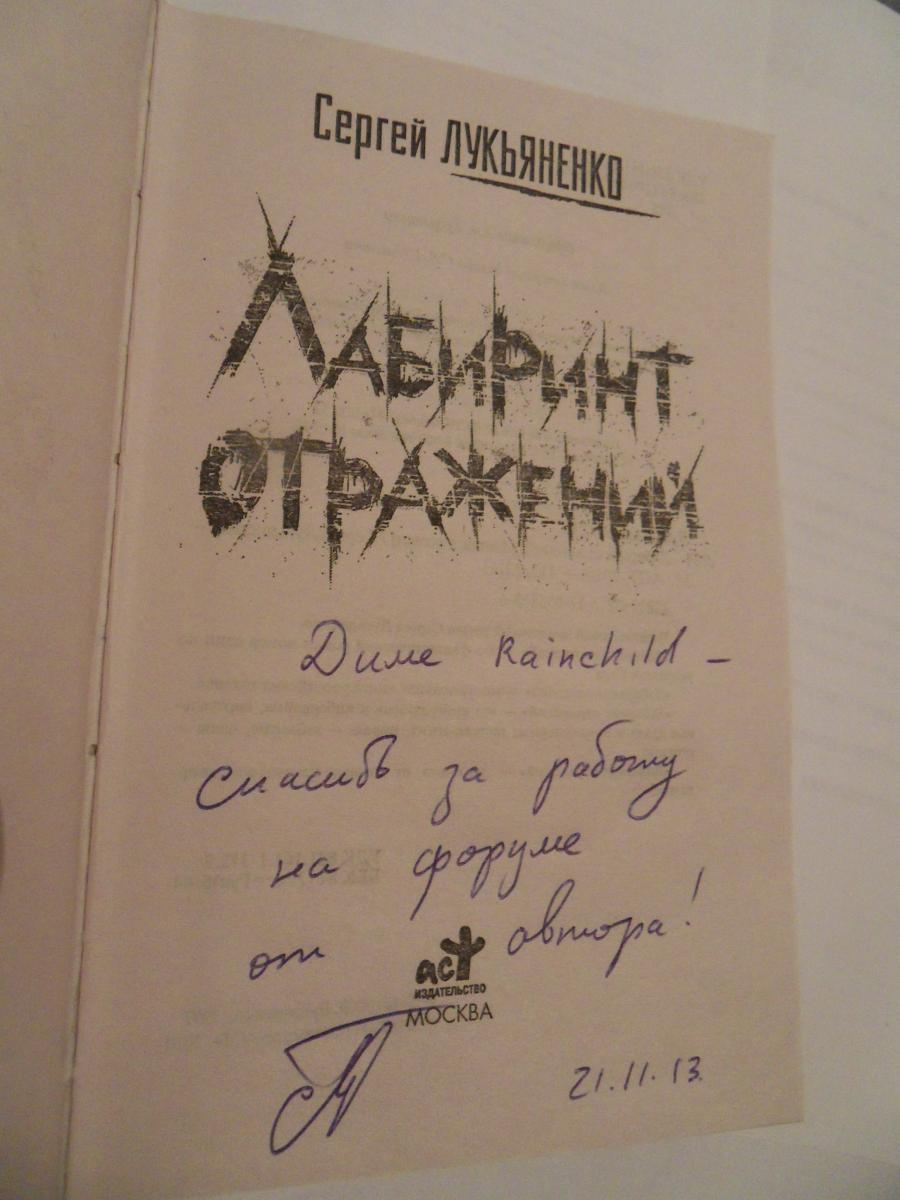 Сергей ЛУКЬЯНЕНКО
ЛАБИРИНТ
ОТРАЖЕНИЙ
Диме Rainchild –
Спасибо за работу
на форуме
от автора!
аст
ИЗДАТЕЛЬСТВО
МОСКВА
21.11.13.